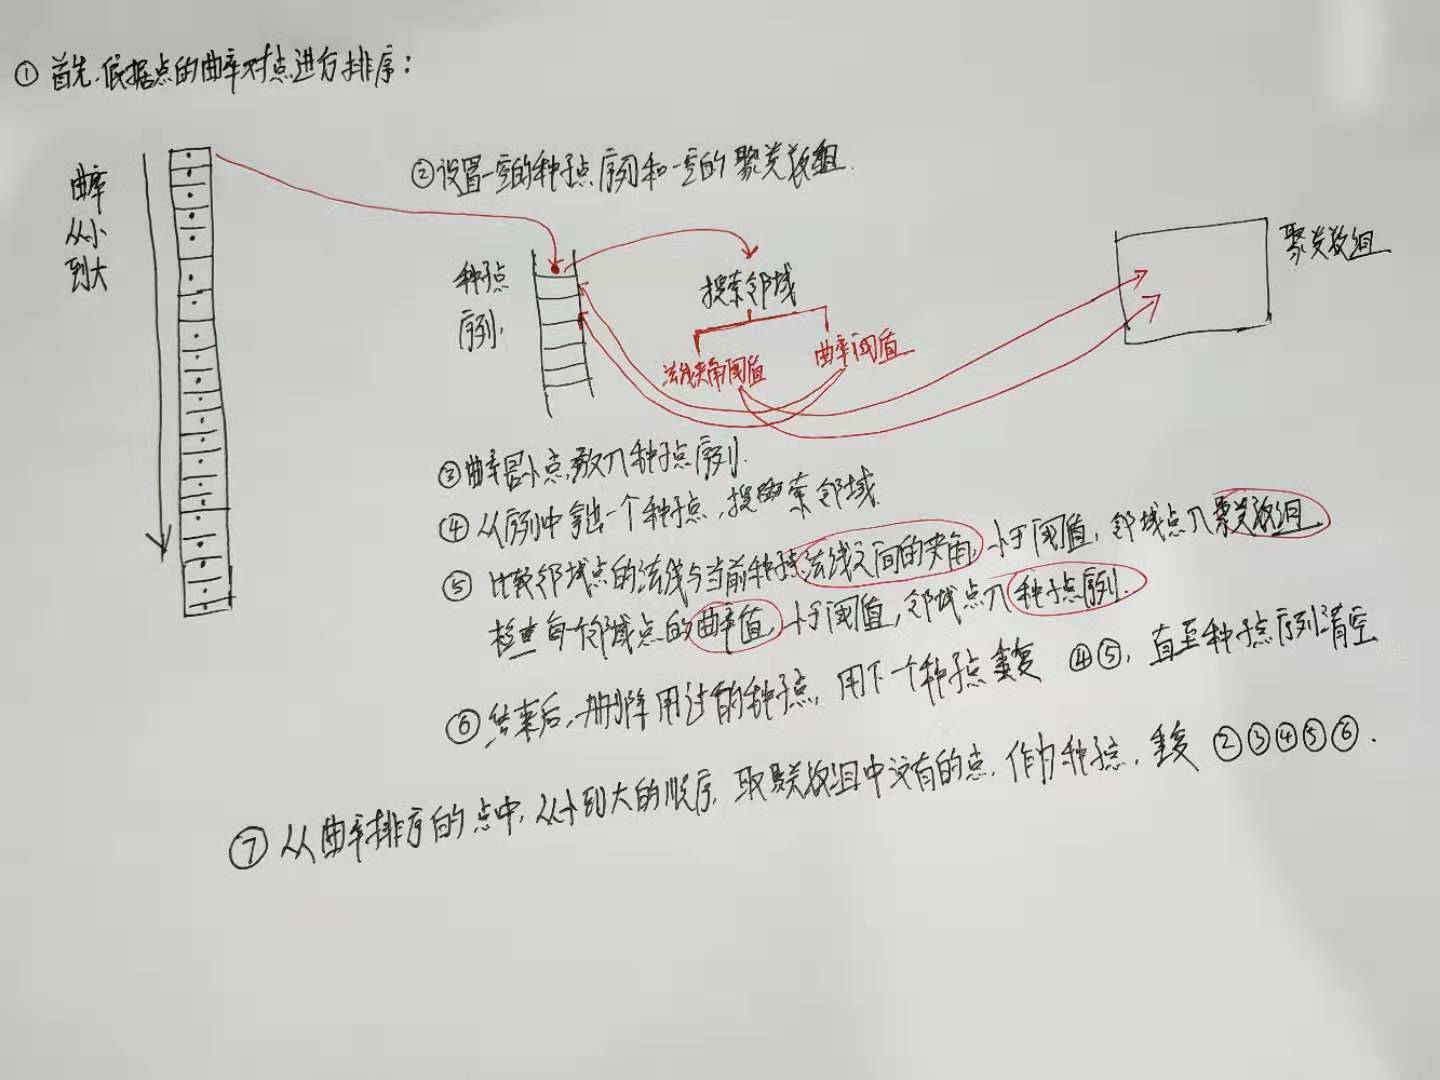 ① 首先,依据点的曲率对点进行排序:
曲率
从小
到大
②设置一空的种子点序列和一空的聚类数组.
种子点
序列,
探索邻域
法线夹角阈值
曲率阈值
聚类数组
③曲率最小点,放入种子点序列.
④ 从序列中拿出一个种子点,搜索邻域.
⑤ 比较邻域点的法线与当前种子点法线之间的夹角,小于阈值,邻域点入聚类数组.
检查每个邻域点的曲率值,小于阈值,邻域点入种子点序列.
⑥ 结束后,删除用过的种子点,用下一个种子点重复 ④⑤,直至种子点序列清空
⑦ 从曲率排序的点中,从小到大的顺序,取聚类数组中没有的点,作为种子点,重复 ②③④⑤⑥.